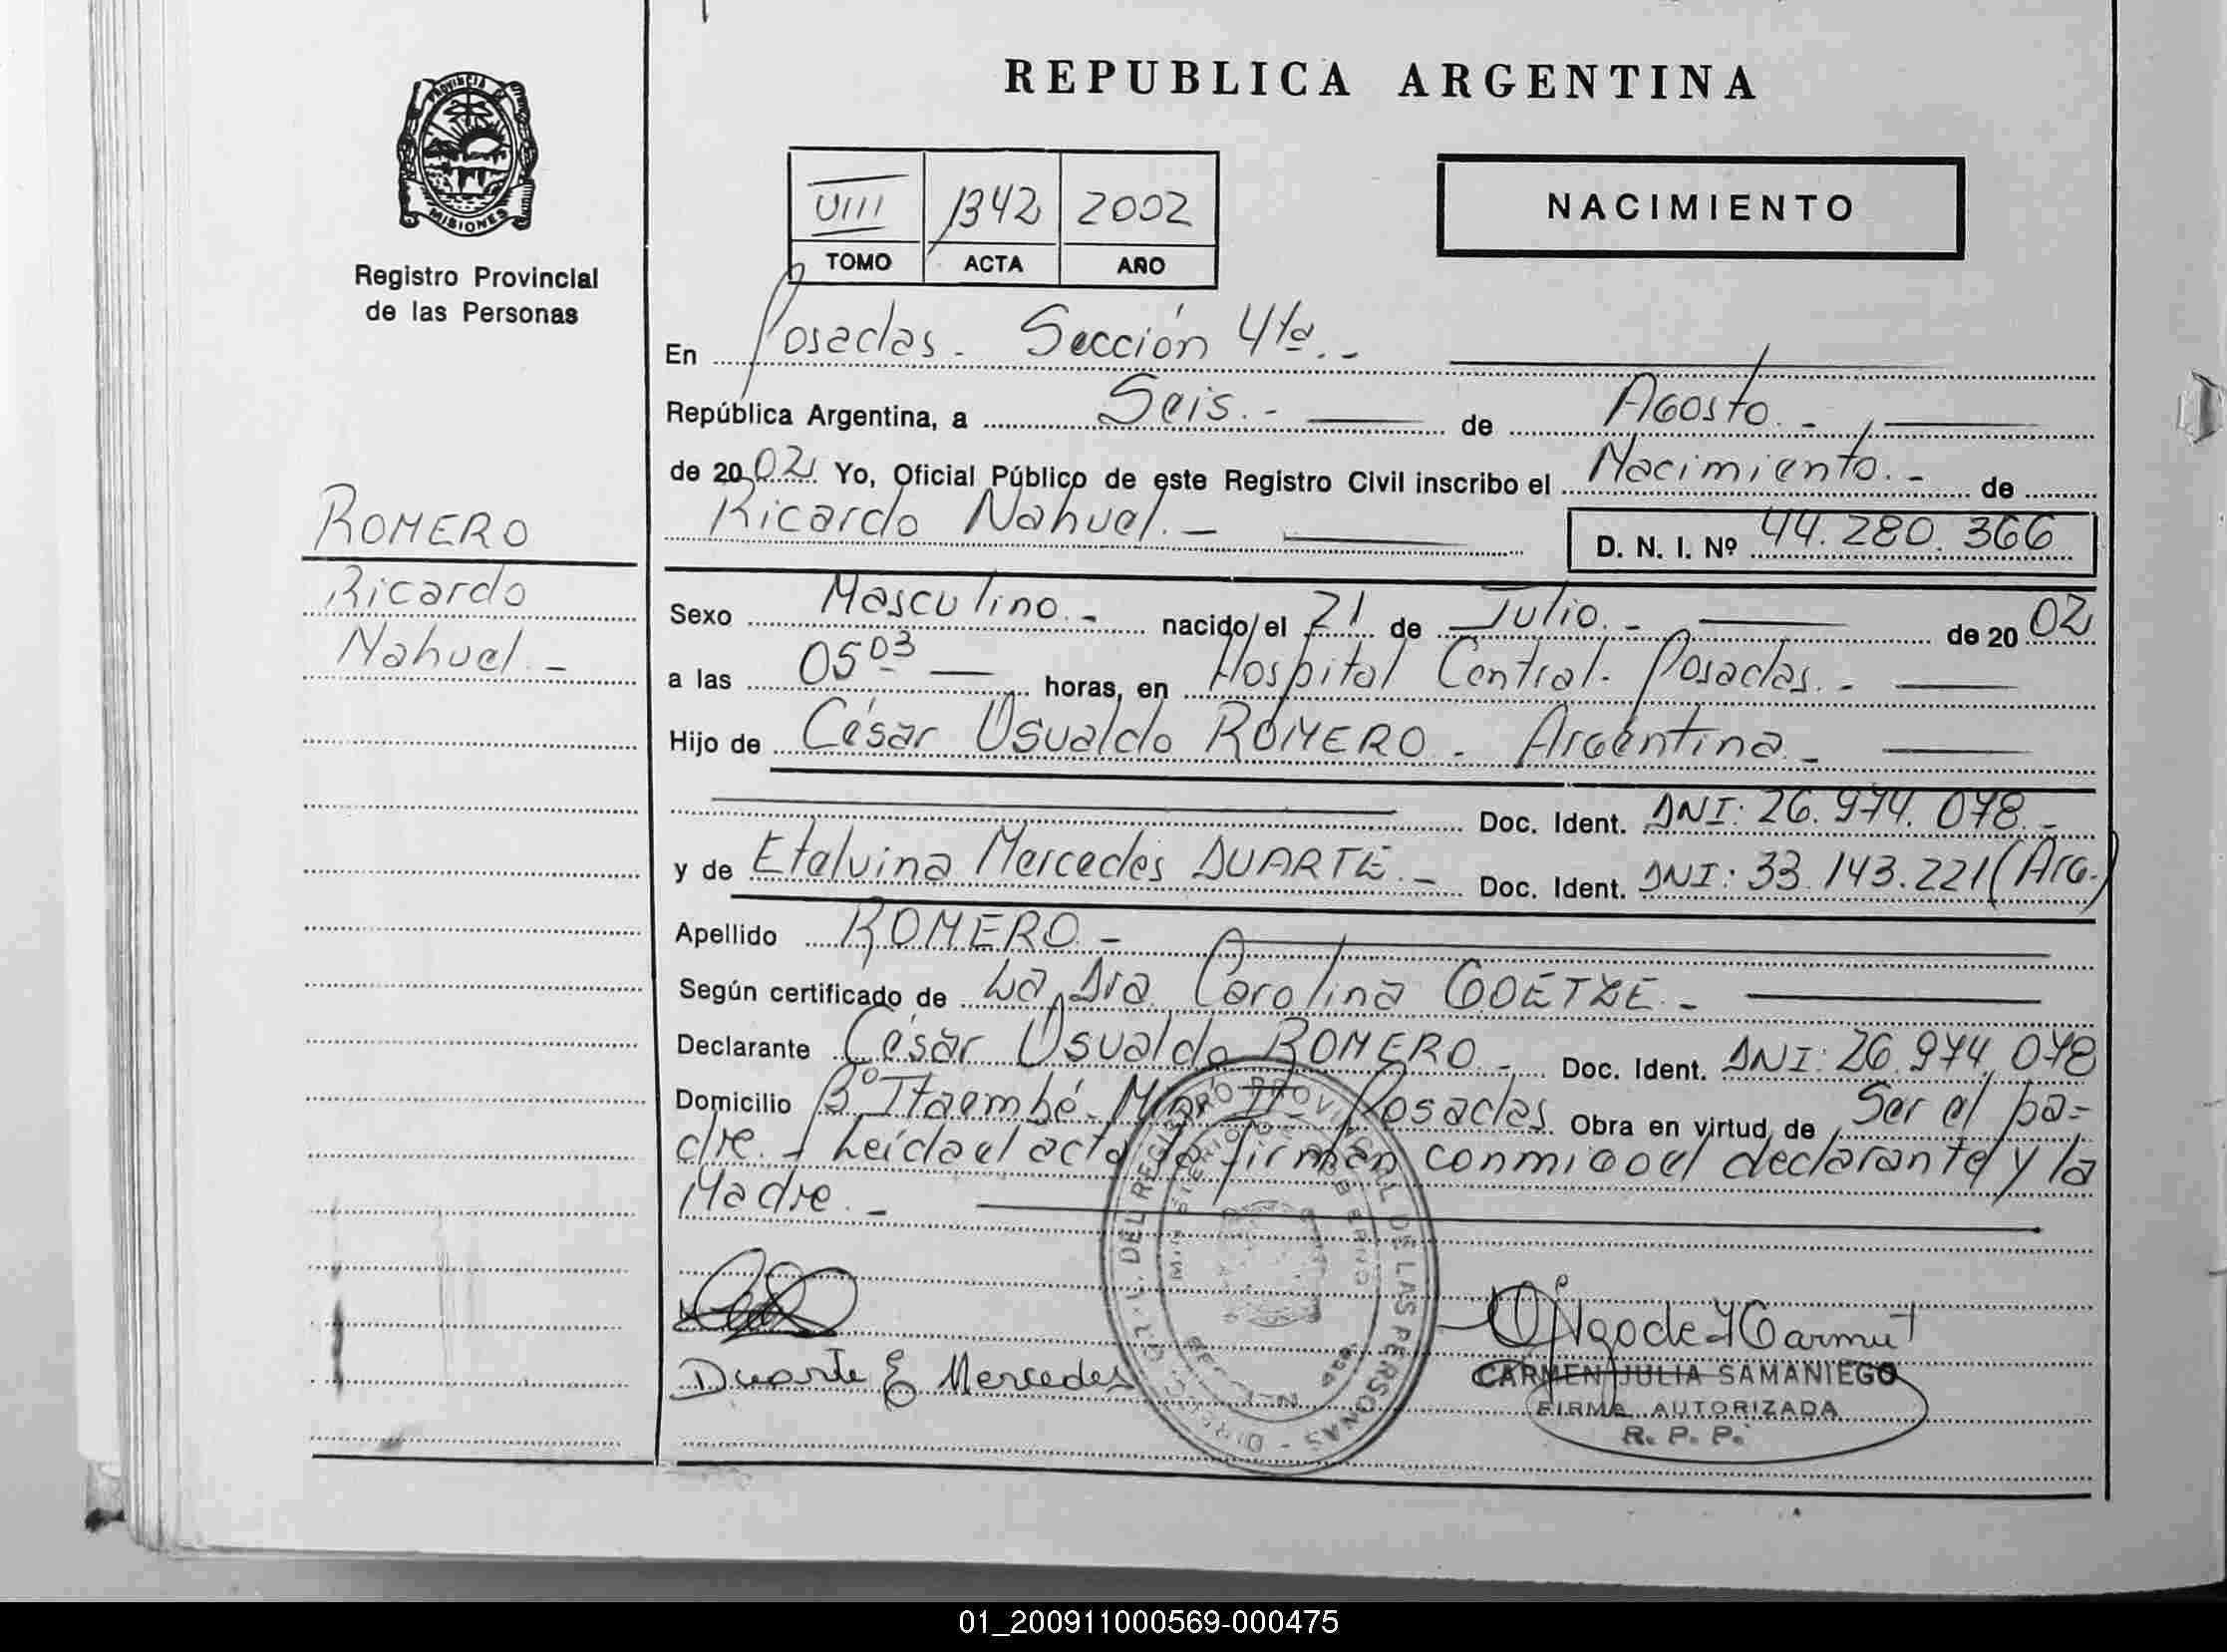 REPUBLICA ARGENTINA
PROVINCIA DE
MISIONES
Registro Provincial
de las Personas
VIII 1342 2002
TOMO ACTA AÑO
NACIMIENTO
En Posadas - Sección 4ta.-
República Argentina, a Seis.- de Agosto.-
de 2002 Yo, Oficial Público de este Registro Civil inscribo el Nacimiento.- de
Ricardo Nahuel.- D. N. I. Nº 44.280.366
ROMERO
Ricardo
Nahuel.-
Sexo Masculino.- nacido el 21 de Julio.- de 2002
a las 05 03 horas, en Hospital Central. Posadas.-
Hijo de César Osualdo ROMERO - Argentina.-
Doc. Ident. DNI: 26.974.078.-
y de Etelvina Mercedes DUARTE.- Doc. Ident. DNI: 33.143.221 (Arg.)
Apellido ROMERO -
Según certificado de La Dra. Carolina GOETZE.-
Declarante César Osualdo ROMERO.- Doc. Ident. DNI: 26.974.078
Domicilio Bº Itaembé - Miní II - Posadas Obra en virtud de Ser el pa=
dre.- Leída el acta la firman conmigo el declarante y la
Madre.-
DIRECC. GRAL. DEL REGISTRO PROVINCIAL DE LAS PERSONAS
MINISTERIO DE GOBIERNO
Duarte E Mercedes
CARMEN JULIA SAMANIEGO
FIRMA AUTORIZADA
R. P. P.
01_200911000569-000475